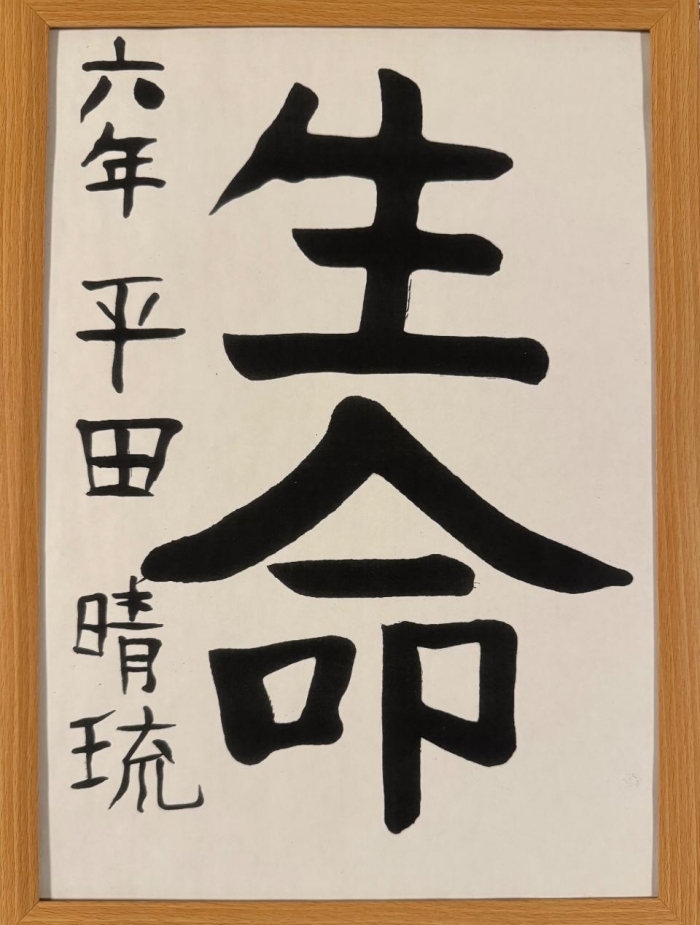 生命
六年 平田 晴琉